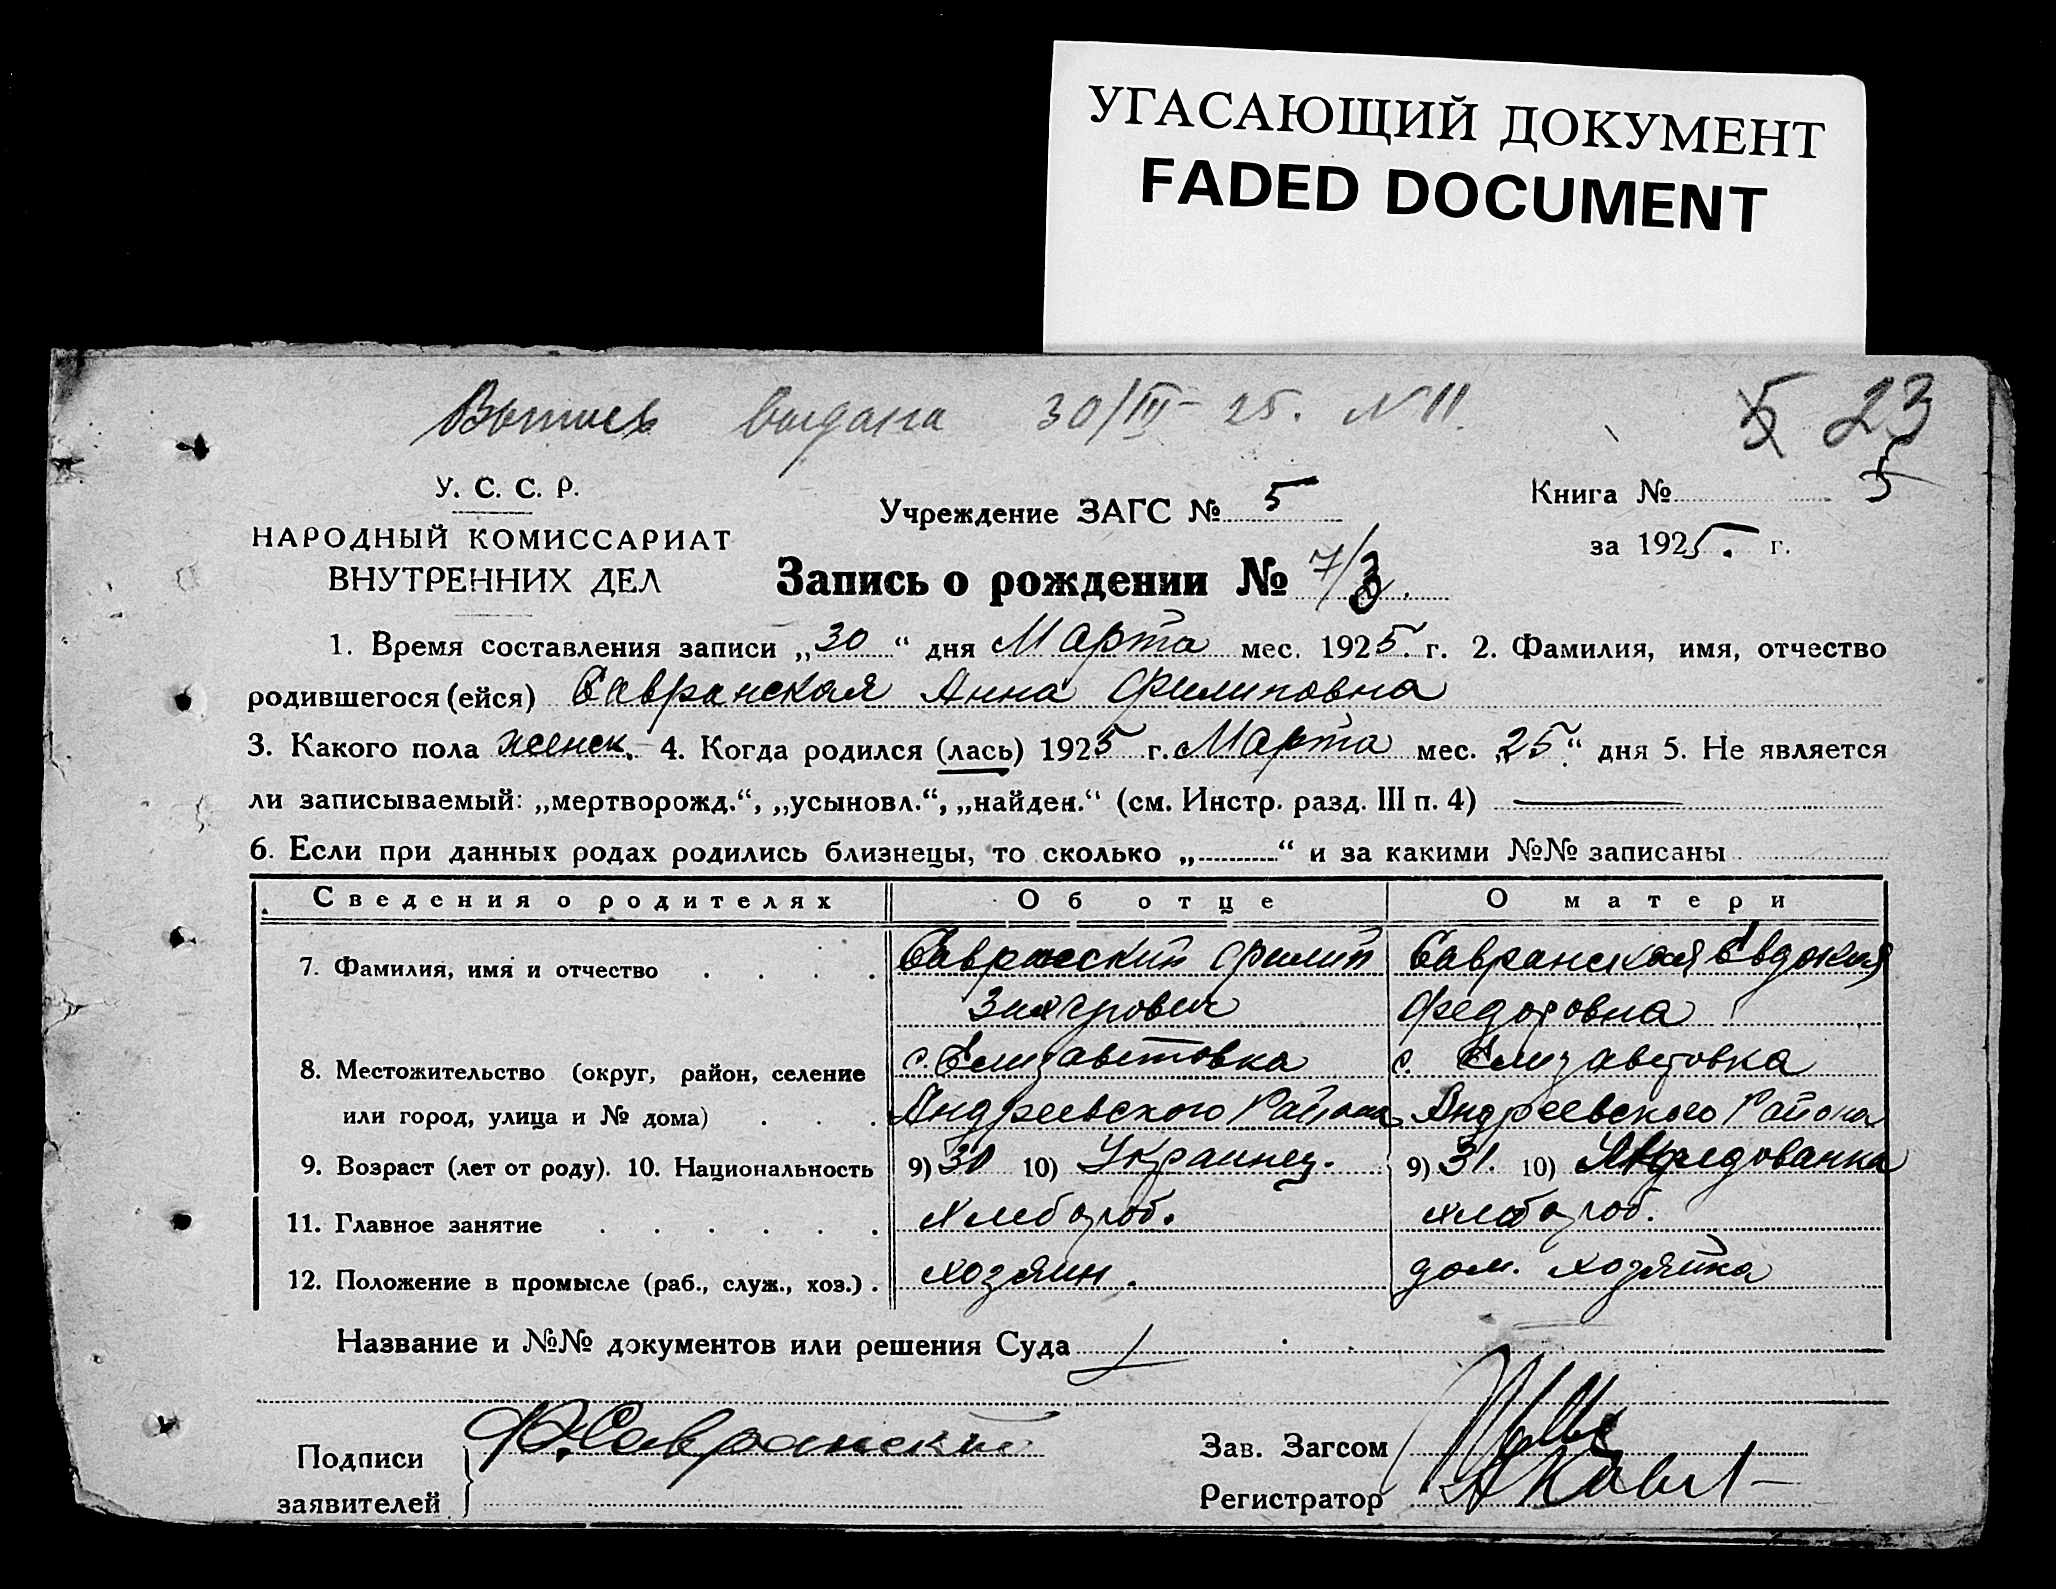 УГАСАЮЩИЙ ДОКУМЕНТ
FADED DOCUMENT
Выпись выдана 30/III-25. N 11.
5 23
У. С. С. Р.
НАРОДНЫЙ КОМИССАРИАТ
ВНУТРЕННИХ ДЕЛ
Учреждение ЗАГС № 5
Книга № 5
за 1925. г.
Запись о рождении № 7/
1. Время составления записи „30“ дня Марта мес. 1925. г. 2. Фамилия, имя, отчество
родившегося (ейся) Савранская Анна Филиповна
3. Какого пола женск. 4. Когда родился (лась) 1925 г. Марта мес. „25“ дня 5. Не является
ли записываемый: „мертворожд.“, „усыновл.“, „найден.“ (см. Инстр. разд. III п. 4)
6. Если при данных родах родились близнецы, то сколько „..........“ и за какими №№ записаны
Сведения о родителях Об отце О матери
7. Фамилия, имя и отчество . . . . Савранский Филип Савранская Евдокия
Федотовна
8. Местожительство (округ, район, селение с. Елизаветовка с. Елизаветовка
или город, улица и № дома) . . . Андреевского Района Андреевского Района
9. Возраст (лет от роду). 10. Национальность 9) 30 10) Украинец. 9) 31. 10)
11. Главное занятие . . . . . . хлебороб. хлебороб.
12. Положение в промысле (раб., служ., хоз.) . хозяин. дом. хозяйка
Название и №№ документов или решения Суда
Подписи
заявителей
Ф. Савранский
Зав. Загсом
Регистратор